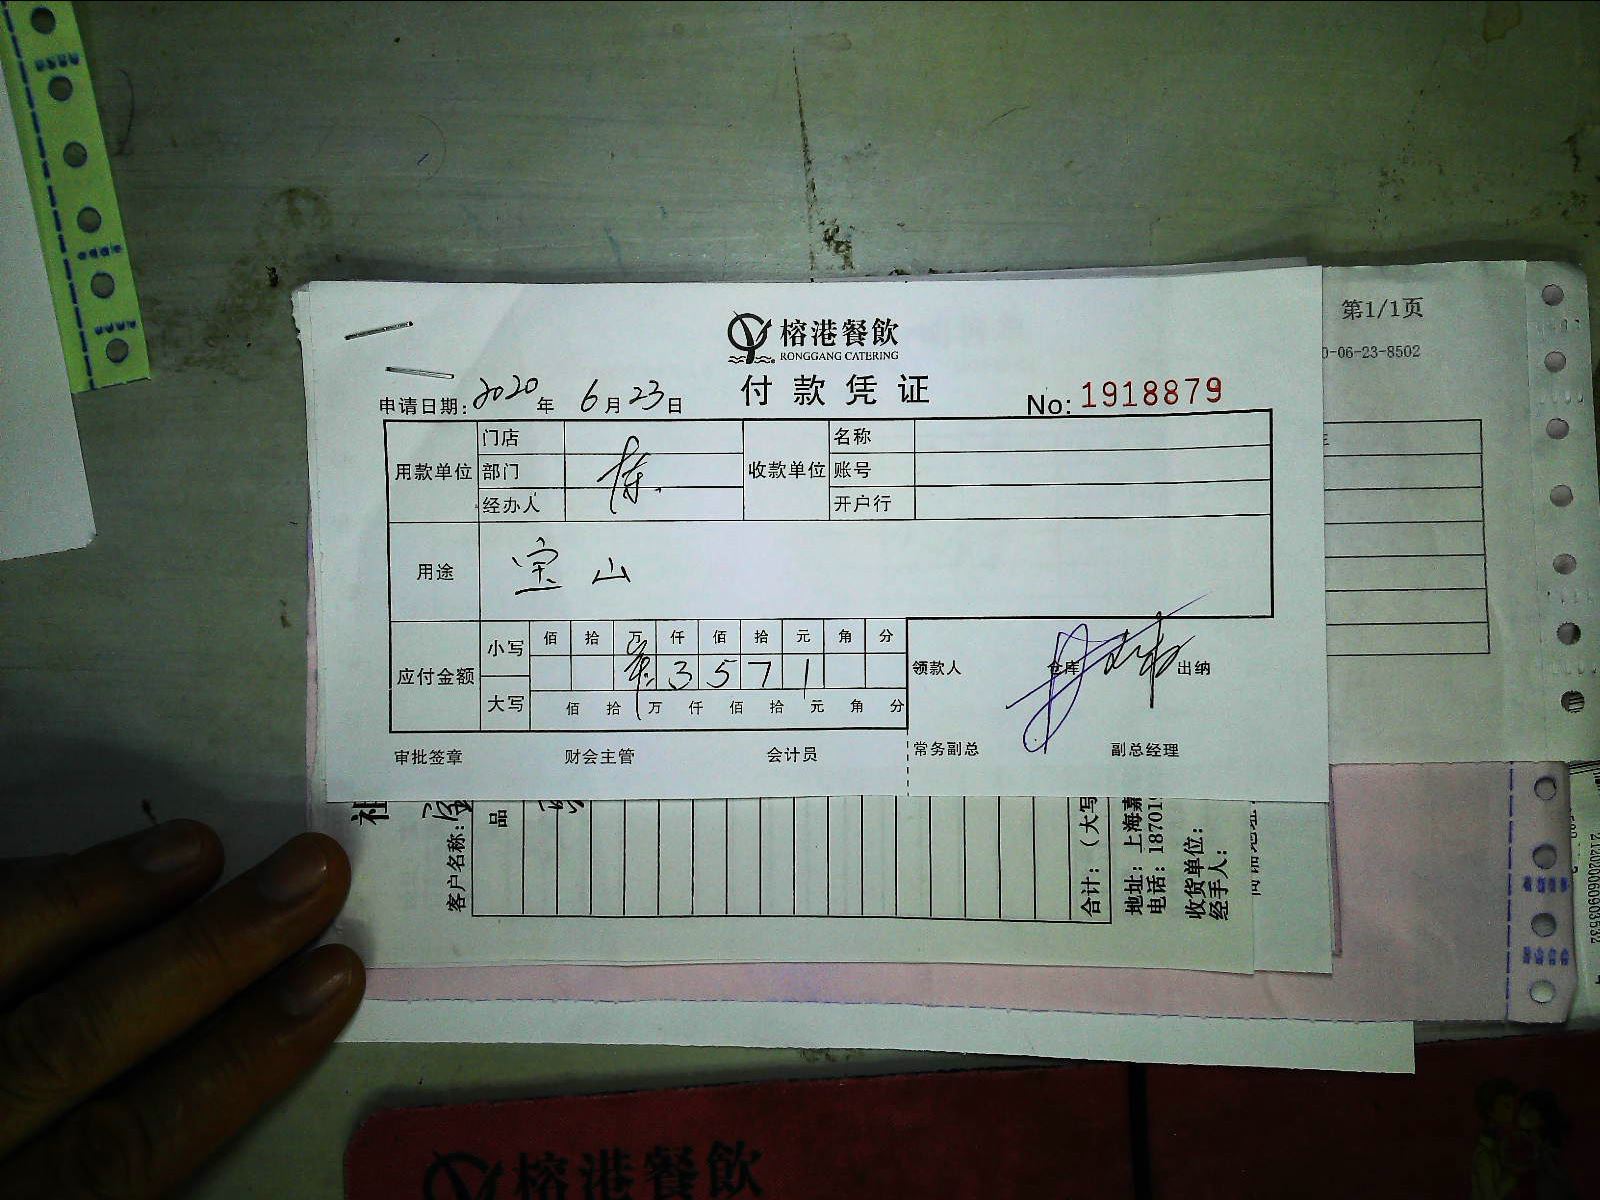 榕港餐飲
RONGGANG CATERING
付款凭证
申请日期: 2020年 6月23日
No: 1918879
用款单位 门店 部门 经办人 陈
收款单位 名称 账号 开户行
用途 宝山
应付金额
小写 佰 拾 万 仟 佰 拾 元 角 分
3 5 7 1
大写 佰 拾 万 仟 佰 拾 元 角 分
领款人 仓库 出纳
审批签章 财会主管 会计员 常务副总 副总经理
第1/1页
0-06-23-8502
客户名称:
品
合计: (大写
地址: 上海嘉
电话: 18701
收货单位:
经手人:
榕港餐飲